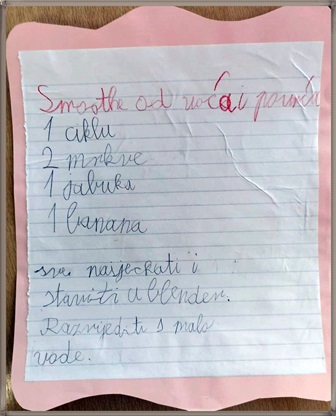 Smoothe od voća i povrća
1 ciklu
2 mrkve
1 jabuka
1 banana
sve nasjeckati i
staviti u blender.
Razrijediti s malo
vode.